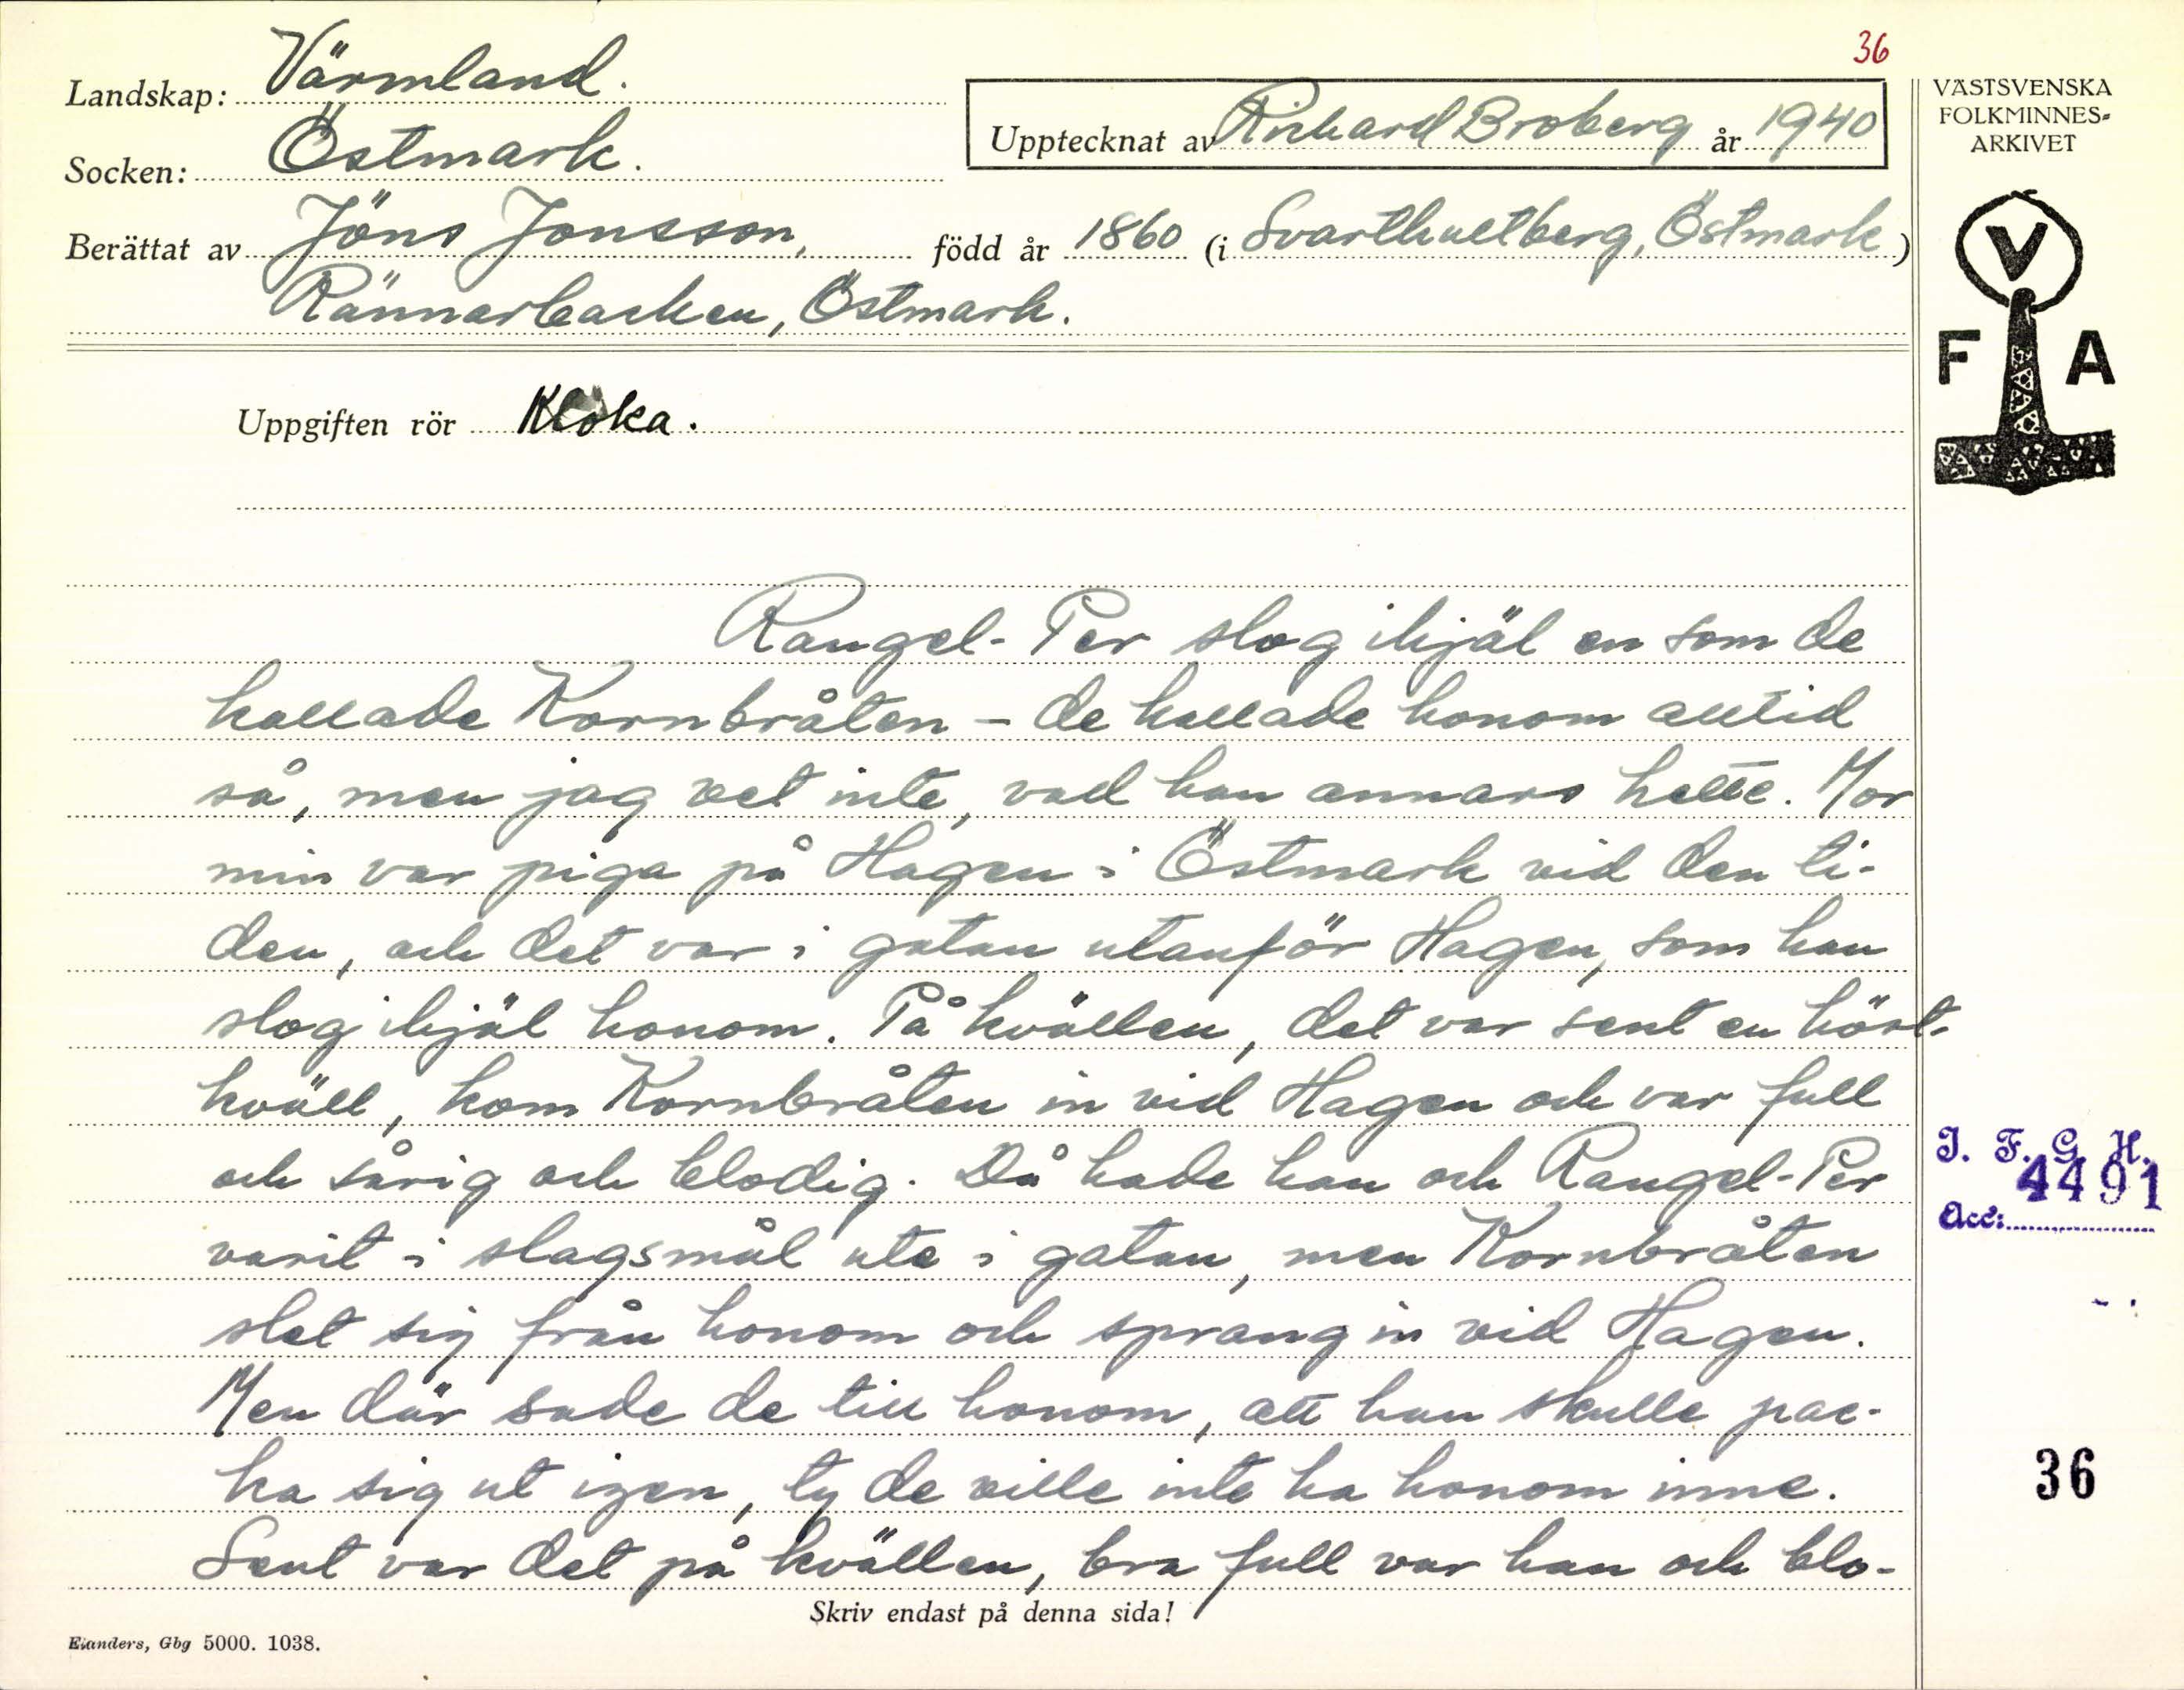 36
Landskap: Värmland.
Socken: Östmark.
Upptecknat av Richard Broberg år 1940
Berättat av Jöns Jonsson, född år 1860 (i Svarthultberg, Östmark)
Rännarbacken, Östmark.
VÄSTSVENSKA
FOLKMINNES=
ARKIVET
V
F A
Uppgiften rör Kloka.
Rangel-Per slog ihjäl en som de
kallade Kornbråten - de kallade honom alltid
så, men jag vet inte, vad han annars hette. Mor
min var piga på Hagen i Östmark vid den ti-
den, och det var i gatan utanför Hagen, som han
slog ihjäl honom. På kvällen, det var sent en höst-
kväll, kom Kornbråten in vid Hagen och var full
och sårig och blodig. Då hade han och Rangel-Per
varit i slagsmål ute i gatan, men Kornbråten
slet sig från honom och sprang in vid Hagen.
Men där sade de till honom, att han skulle pac-
ka sig ut igen, ty de ville inte ha honom inne.
Sent var det på kvällen, bra full var han och blo-
I. F. G. H.
4491
Acc:
36
Skriv endast på denna sida!
Elanders, Gbg 5000. 1038.